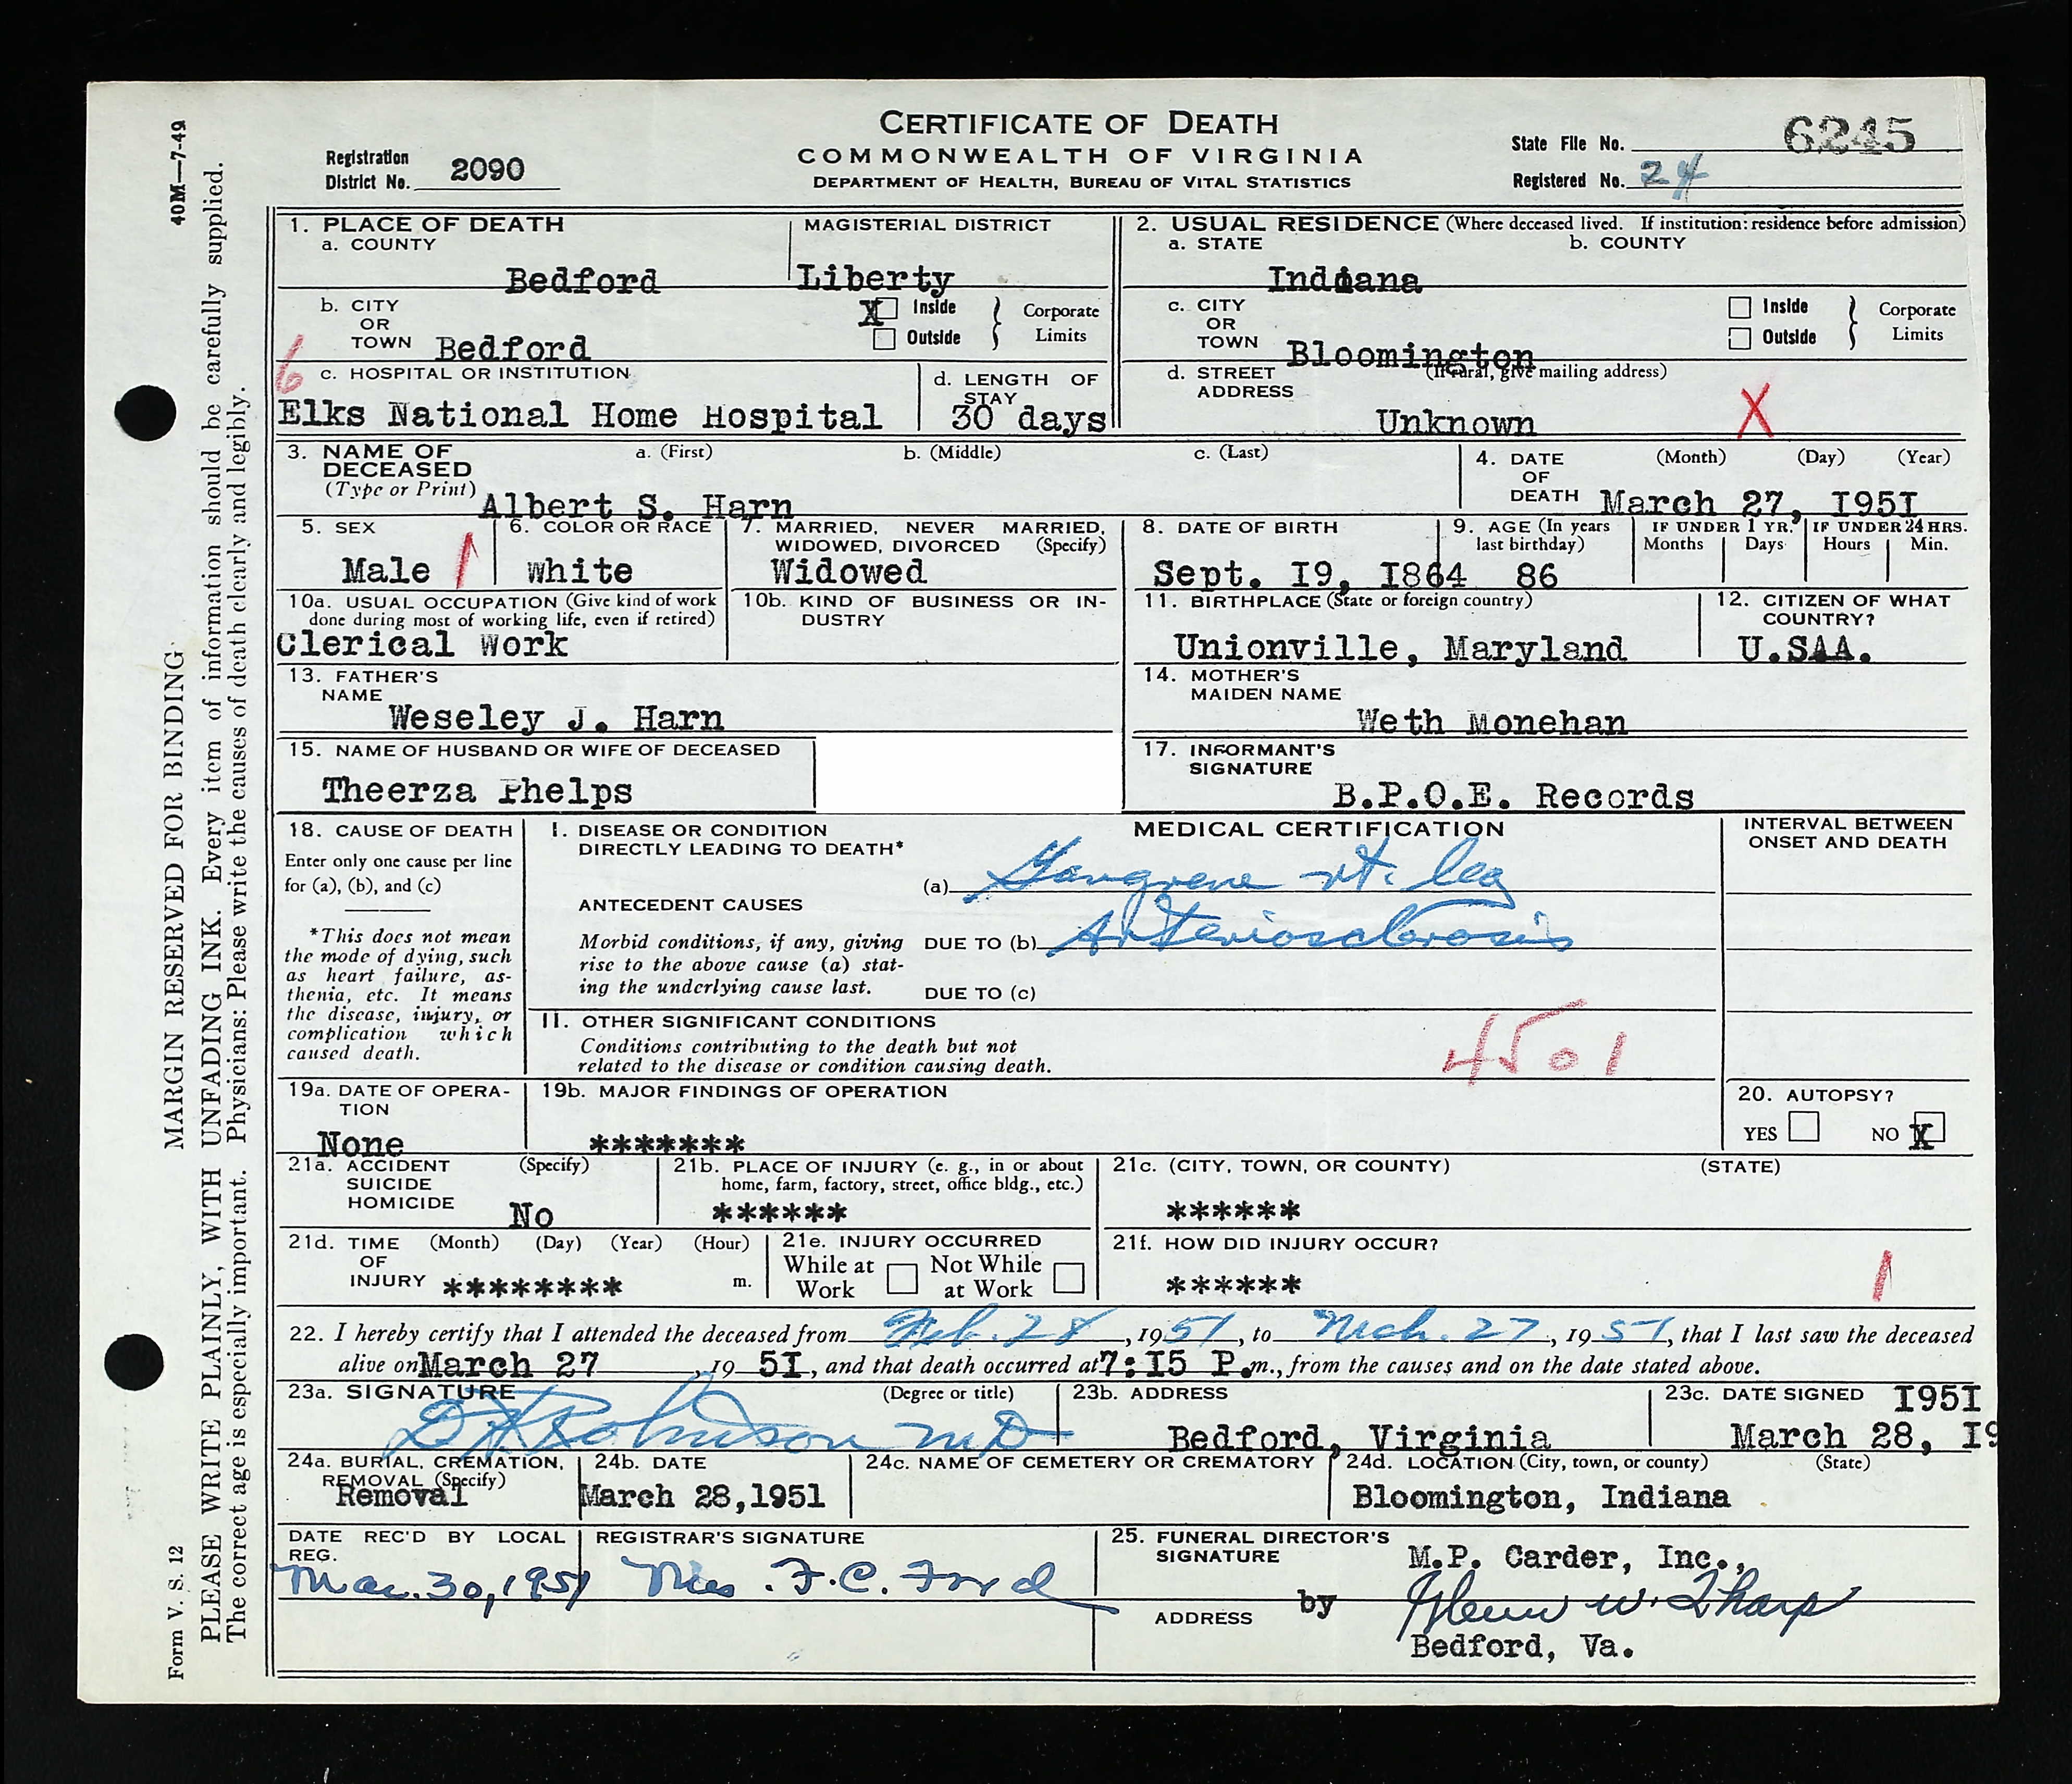 CERTIFICATE OF DEATH
COMMONWEALTH OF VIRGINIA
DEPARTMENT OF HEALTH, BUREAU OF VITAL STATISTICS
Registration District No. 2090
State File No. 6245
Registered No. 24
40M—7-49
MARGIN RESERVED FOR BINDING
PLEASE WRITE PLAINLY, WITH UNFADING INK. Every item of information should be carefully supplied.
The correct age is especially important. Physicians: Please write the causes of death clearly and legibly.
Form V. S. 12
1. PLACE OF DEATH
a. COUNTY
Bedford
MAGISTERIAL DISTRICT
Liberty
2. USUAL RESIDENCE (Where deceased lived. If institution: residence before admission)
a. STATE b. COUNTY
Indiana
b. CITY OR TOWN Bedford
X Inside
Outside
} Corporate Limits
c. CITY OR TOWN Bloomington
Inside
Outside
} Corporate Limits
6
c. HOSPITAL OR INSTITUTION
Elks National Home Hospital
d. LENGTH OF STAY
30 days
d. STREET ADDRESS (If rural, give mailing address)
Unknown X
3. NAME OF DECEASED (Type or Print)
a. (First) b. (Middle) c. (Last)
Albert S. Harn
4. DATE OF DEATH (Month) (Day) (Year)
March 27, I95I
5. SEX
Male 1
6. COLOR OR RACE
White
7. MARRIED, NEVER MARRIED, WIDOWED, DIVORCED (Specify)
Widowed
8. DATE OF BIRTH
Sept. I9, I864
9. AGE (In years last birthday)
86
IF UNDER 1 YR. Months Days
IF UNDER 24 HRS. Hours Min.
10a. USUAL OCCUPATION (Give kind of work done during most of working life, even if retired)
Clerical Work
10b. KIND OF BUSINESS OR INDUSTRY
11. BIRTHPLACE (State or foreign country)
Unionville, Maryland
12. CITIZEN OF WHAT COUNTRY?
U.SAA.
13. FATHER'S NAME
Weseley J. Harn
14. MOTHER'S MAIDEN NAME
Weth Monehan
15. NAME OF HUSBAND OR WIFE OF DECEASED
Theerza Phelps
17. INFORMANT'S SIGNATURE
B.P.O.E. Records
18. CAUSE OF DEATH
Enter only one cause per line for (a), (b), and (c)
*This does not mean the mode of dying, such as heart failure, asthenia, etc. It means the disease, injury, or complication which caused death.
MEDICAL CERTIFICATION
INTERVAL BETWEEN ONSET AND DEATH
I. DISEASE OR CONDITION DIRECTLY LEADING TO DEATH*
(a) Gangrene rt. leg
ANTECEDENT CAUSES
Morbid conditions, if any, giving rise to the above cause (a) stating the underlying cause last.
DUE TO (b) Arteriosclerosis
DUE TO (c)
II. OTHER SIGNIFICANT CONDITIONS
Conditions contributing to the death but not related to the disease or condition causing death.
4501
19a. DATE OF OPERATION
None
19b. MAJOR FINDINGS OF OPERATION
*******
20. AUTOPSY?
YES NO X
21a. ACCIDENT SUICIDE HOMICIDE (Specify)
No
21b. PLACE OF INJURY (e. g., in or about home, farm, factory, street, office bldg., etc.)
******
21c. (CITY, TOWN, OR COUNTY) (STATE)
******
21d. TIME OF INJURY (Month) (Day) (Year) (Hour)
******** m.
21e. INJURY OCCURRED
While at Work Not While at Work
21f. HOW DID INJURY OCCUR?
****** 1
22. I hereby certify that I attended the deceased from Feb. 28, 1951, to Mch. 27, 1951, that I last saw the deceased
alive on March 27, 19 5I, and that death occurred at 7:I5 P.m., from the causes and on the date stated above.
23a. SIGNATURE (Degree or title)
Robinson MD
23b. ADDRESS
Bedford, Virginia
23c. DATE SIGNED I95I
March 28, I9
24a. BURIAL, CREMATION, REMOVAL (Specify)
Removal
24b. DATE
March 28,1951
24c. NAME OF CEMETERY OR CREMATORY
24d. LOCATION (City, town, or county) (State)
Bloomington, Indiana
DATE REC'D BY LOCAL REG.
Mar. 30, 1951
REGISTRAR'S SIGNATURE
F. C. Ford
25. FUNERAL DIRECTOR'S SIGNATURE
M.P. Carder, Inc.,
by Glenn W. Tharp
ADDRESS
Bedford, Va.